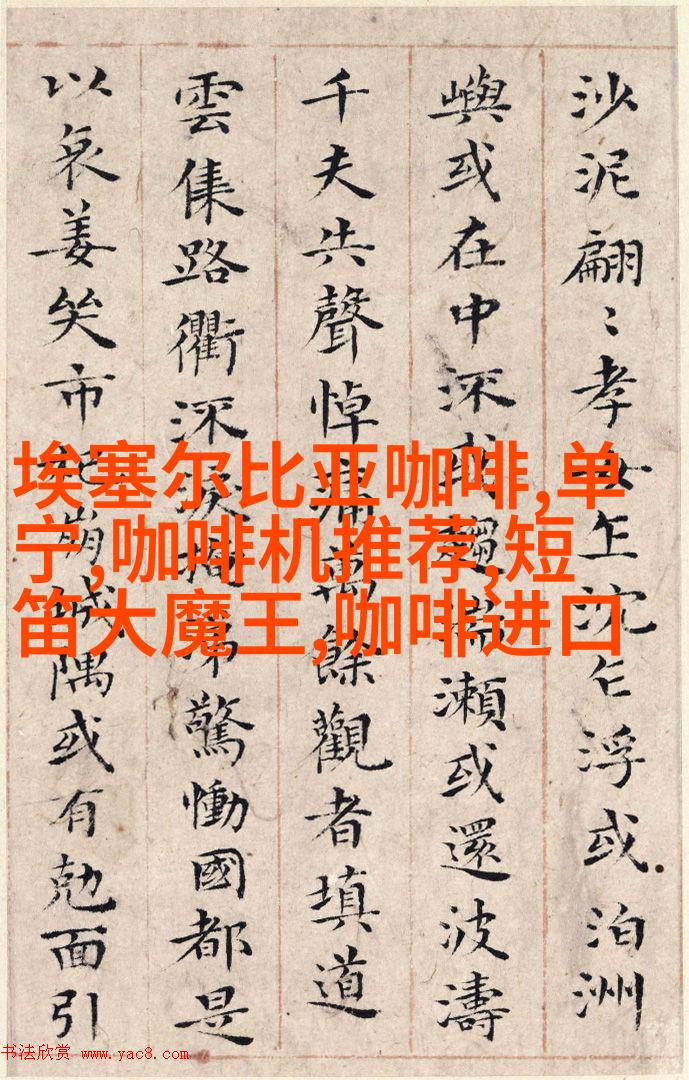 沙泥翩〻孝女乍沈乍浮或泊洲
嶼或在中深或趨湍瀨或還波濤
千夫失聲悼痛萬餘觀者填道
雲集路衢深淚掩涕驚慟國都是
以哀姜哭市杞崩城隅或有剋面引
埃塞尔比亚咖啡,单
宁,咖啡机推荐,短
笛大魔王,咖啡进口
书法欣赏 www.yac8.com